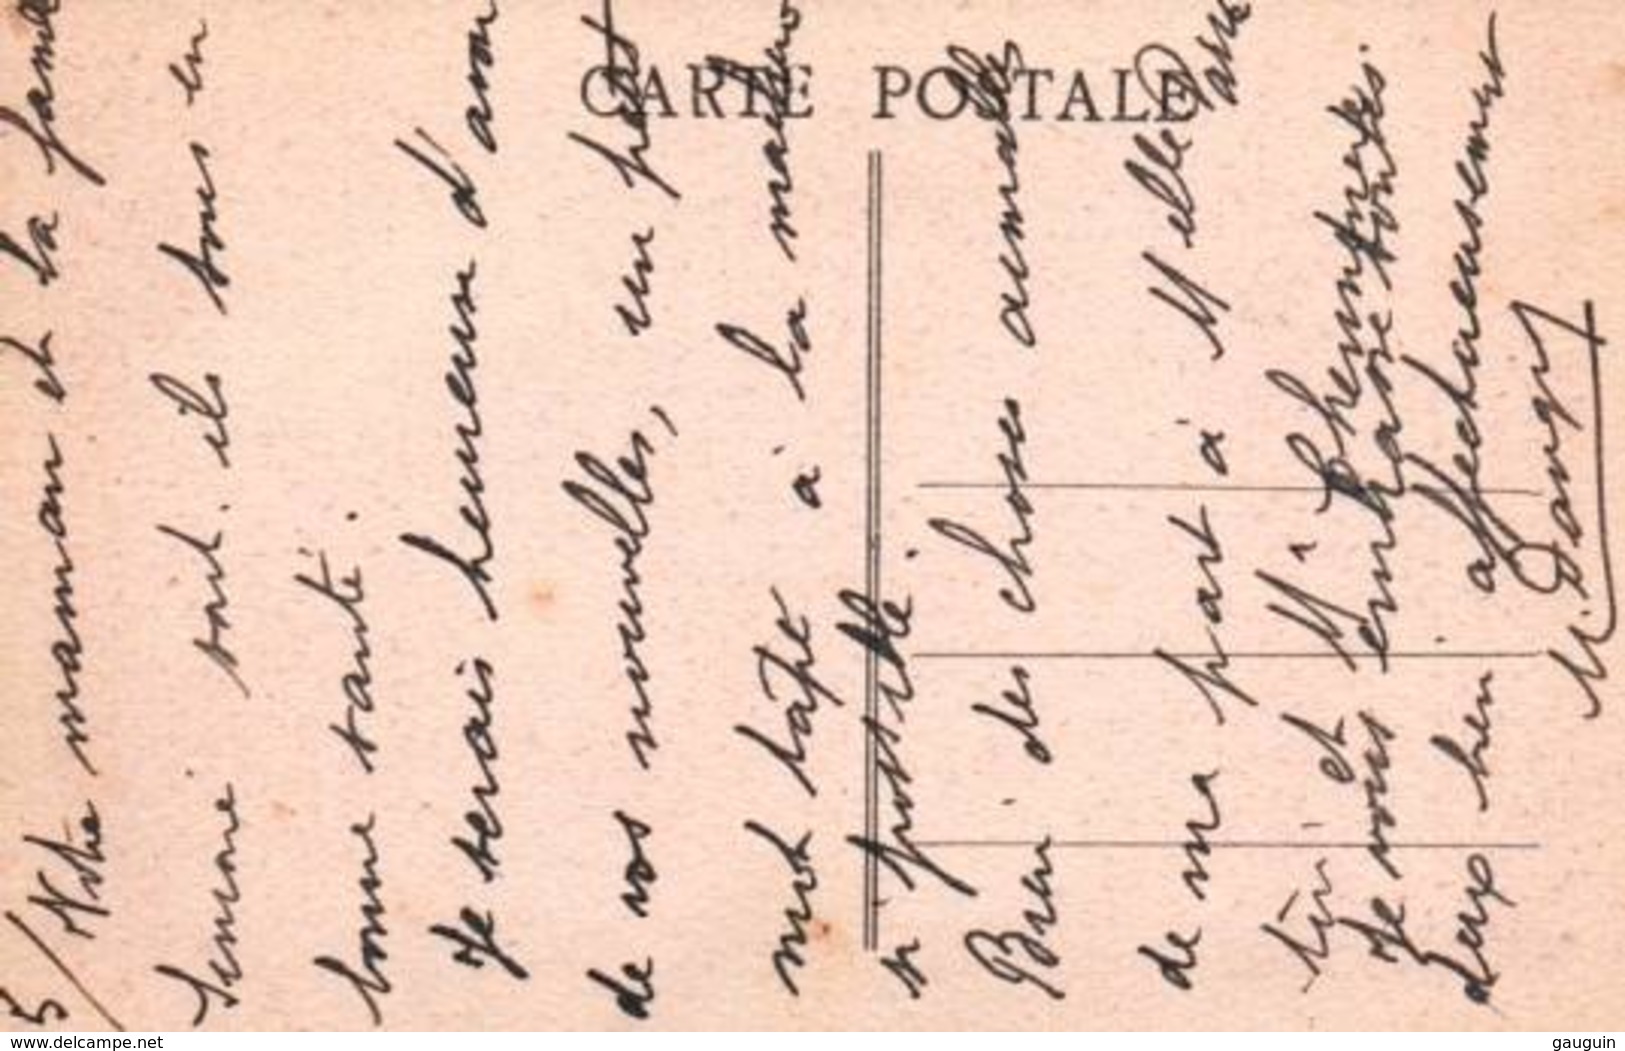 CARTE POSTALE
5/ Votre maman et la
sont-ils tous en
bonne santé.
Je serais heureux d'avoir
de vos nouvelles, un petit
mot tapé à la machine
si possible.
Bien des choses aimables
de ma part à Melle
tin et Mr
Je vous embrasse toutes
deux bien affectueusement
www.delcampe.net
gauguin